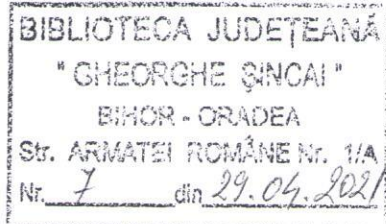 BIBLIOTECA JUDEȚEANĂ
"GHEORGHE ȘINCAI"
BIHOR - ORADEA
Str. ARMATEI ROMÂNE Nr. 1/A
Nr. 7 din 29.04.2021